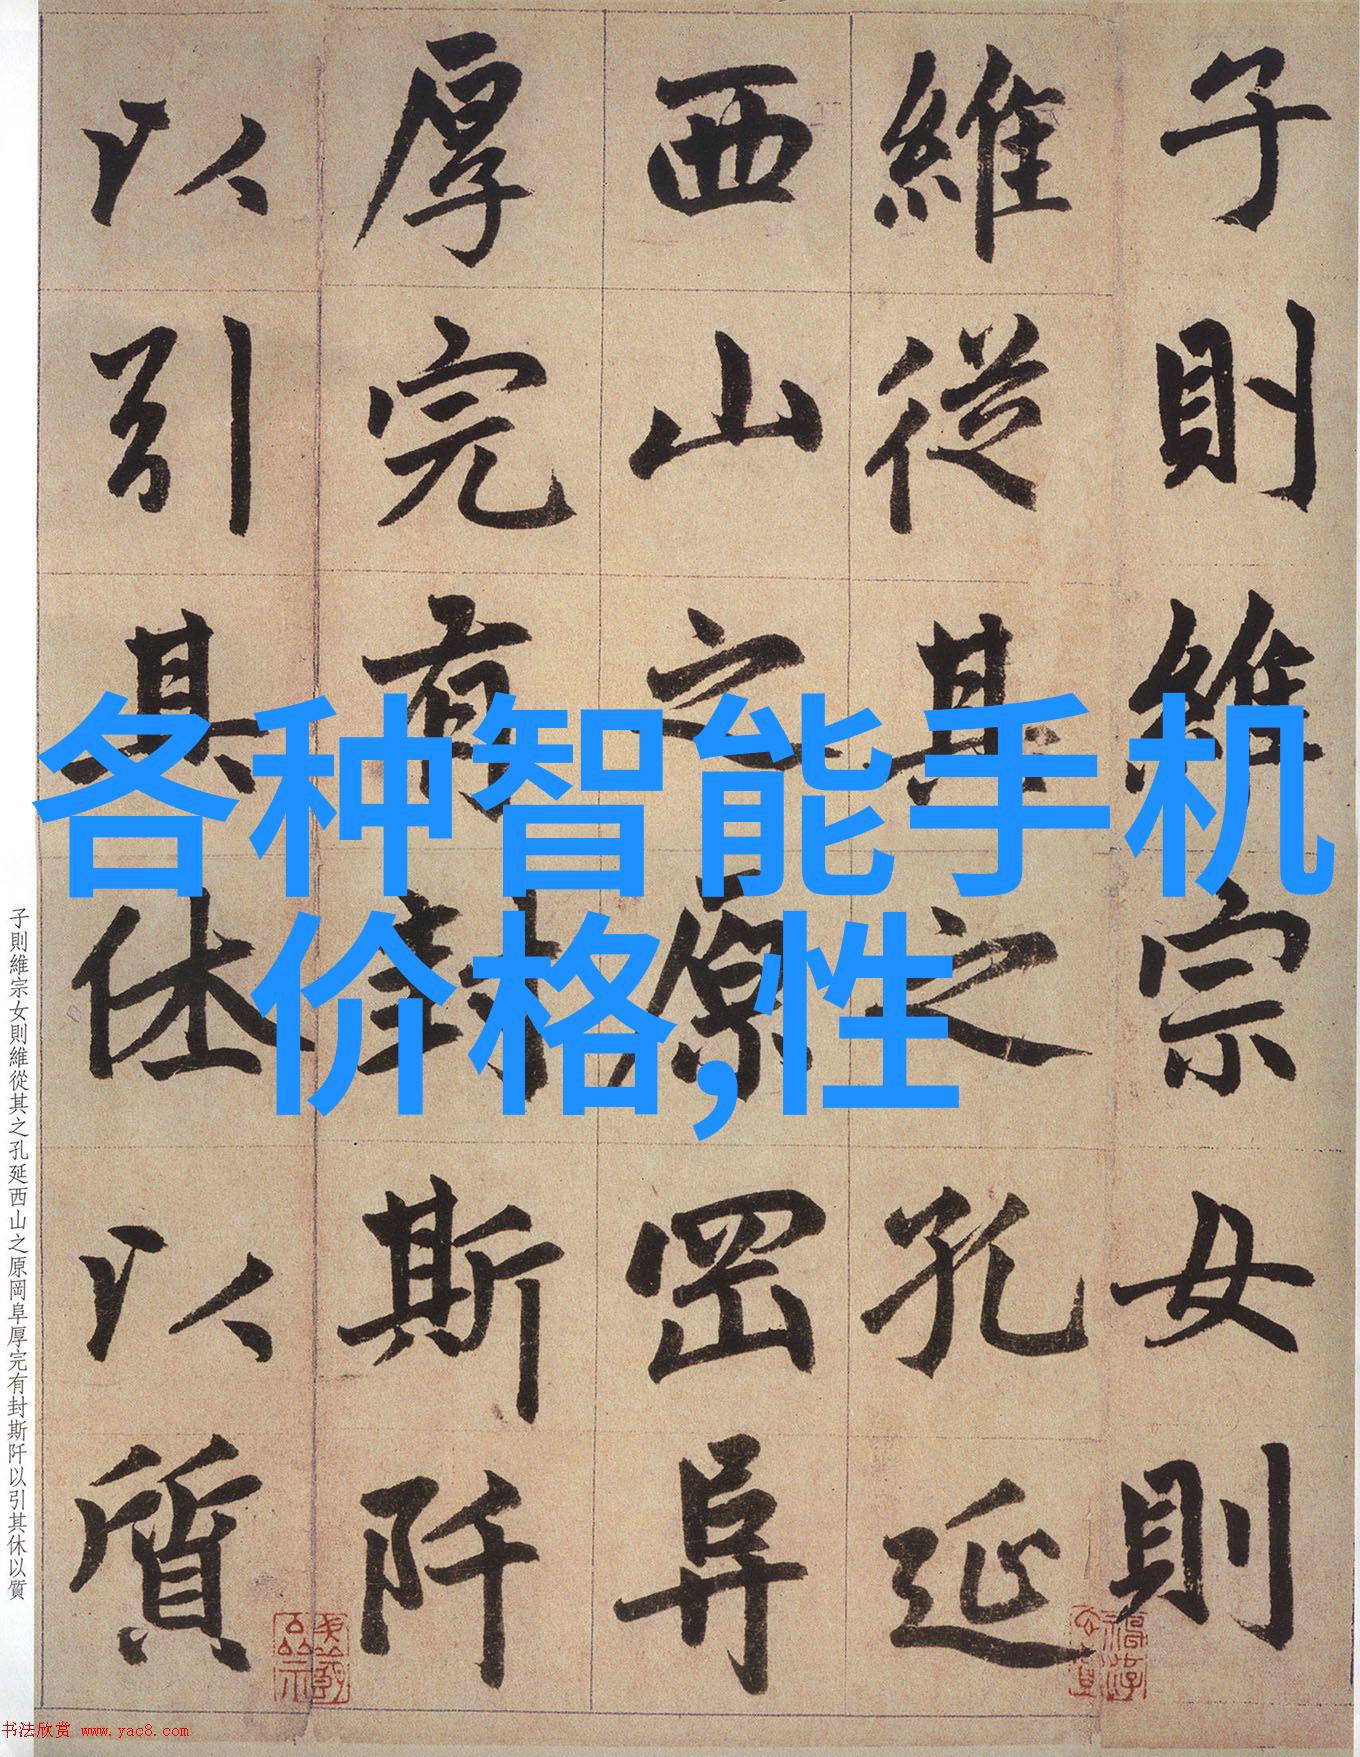 子則維宗女則
維從其之孔延
西山之原罡阜
厚完有封斯阡
以引其休以質
各种智能手机
价格,性
子則維宗女則維從其之孔延西山之原岡阜厚完有封斯阡以引其休以質
书法欣赏 www.yac8.com